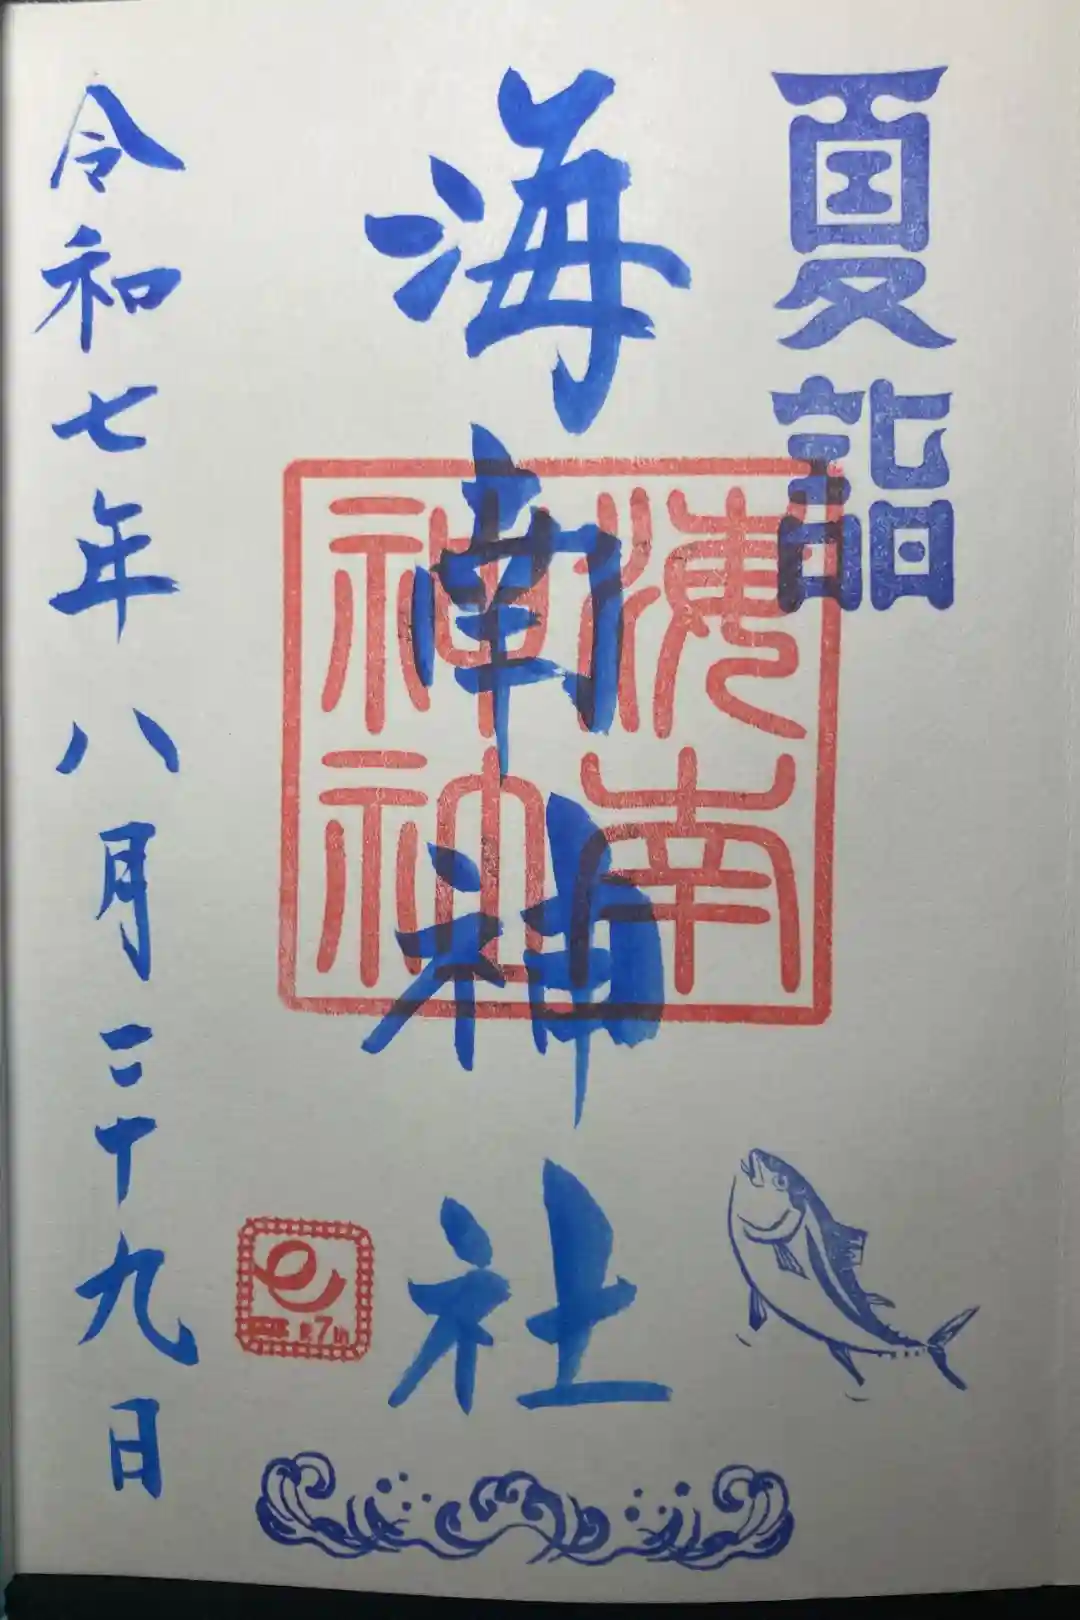 夏詣
海南神社
海南
神社
令和七年八月二十九日
e
7th